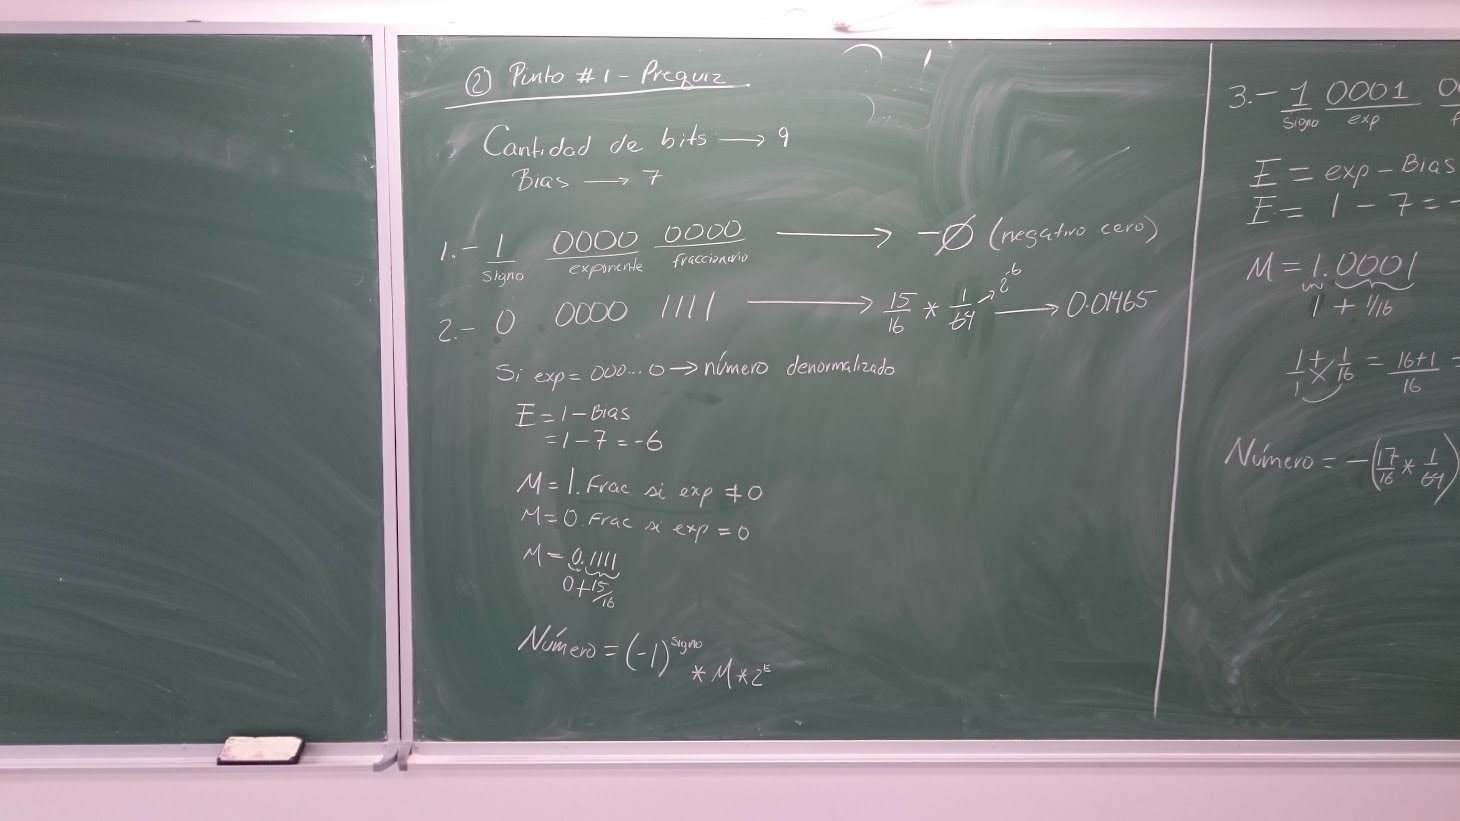 ② Punto #1 - Prequiz
Cantidad de bits → 9
Bias → 7
1.- 1 0000 0000 → -Ø (negativo cero)
signo exponente fraccionario
2.- 0 0000 1111 → 15/16 * 1/64 → 2^-6 → 0.01465
Si exp = 000...0 → número denormalizado
E = 1 - Bias
= 1 - 7 = -6
M = 1.Frac si exp ≠ 0
M = 0.Frac si exp = 0
M = 0.1111
0 + 15/16
Número = (-1)^signo * M * 2^E
3.- 1 0001
signo exp
E = exp - Bias
E = 1 - 7 = -
M = 1.0001
1 + 1/16
1/1 + 1/16 = 16+1/16 =
Número = -(17/16 * 1/64)